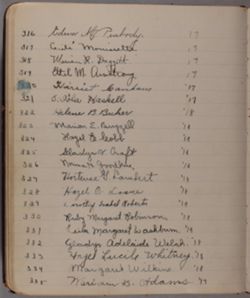 316 Edna M. Peabody. 17
317 17
318 Marian R. 17
319 Ethel M. Armstrong 17
320 Harriet 17
321 Haskell '18
322 Helene B. Becker '18
323 Marian E. '18
324 Hazel G. '18
325 Gladys V. Craft '18
326 Norma '18
327 Hortense G. Lambert '18
328 Hazel E. Loane '18
329 Dorothy Isabel Roberts '18
330 Ruby Margaret Robinson '18
331 Margaret Washburn '18
332 Gladys Adelaide Welsh '18
333 Hazel Lucile Whitney '18
334 Margaret Watkins '18
335 Miriam B. Adams '19